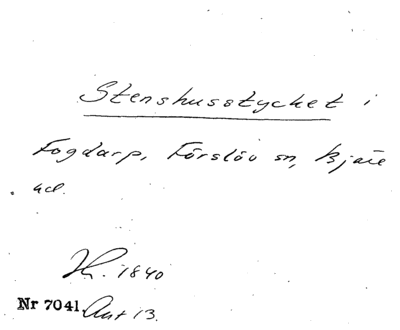 Stenshusstycket i
Fogdarp, Förslöv sn, Bjäre
hd.
Hr. 1840
Nr 7041. Akt 13.